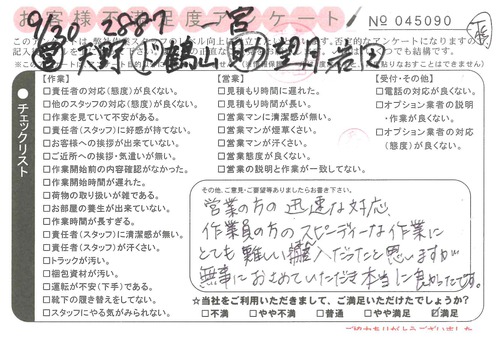 お客様不満足度アンケート
No 045090
9/30 2887 一宮
天野 鶴山 望月 岩田
チェックリスト
【作業】
□責任者の対応(態度)が良くない。
□他のスタッフの対応(態度)が良くない。
□作業を見ていて不安がある。
□責任者(スタッフ)に好感が持てない。
□お客様への挨拶が出来ていない。
□ご近所への挨拶・気遣いが無い。
□作業開始前の内容確認がなかった。
□作業開始時間が遅れた。
□荷物の取り扱いが雑である。
□お部屋の養生が出来ていない。
□作業時間が長すぎる。
□責任者(スタッフ)に清潔感が無い。
□責任者(スタッフ)が汗くさい。
□トラックが汚い。
□梱包資材が汚い。
□運転が不安(下手)である。
□靴下の履き替えをしてない。
□スタッフにやる気がみられない。
【営業】
□見積もり時間に遅れた。
□見積もり時間が長い。
□営業マンに清潔感が無い。
□営業マンが煙草くさい。
□営業マンが汗くさい。
□営業態度が良くない。
□営業の説明と作業が一致してない。
【受付・その他】
□電話の対応が良くない。
□オプション業者の説明
・作業が良くない。
□オプション業者の対応
(態度)が良くない。
その他、ご意見・ご要望等ありましたらお書き下さい。
営業の方の迅速な対応、
作業員の方のスピーディーな作業に
とても難しい搬入だったと思いますが
無事におさめていただき本当に良かったです。
☆当社をご利用いただきまして、ご満足いただけたでしょうか？
□不満 □やや不満 □普通 □やや満足 ☑満足
ご協力ありがとうございました